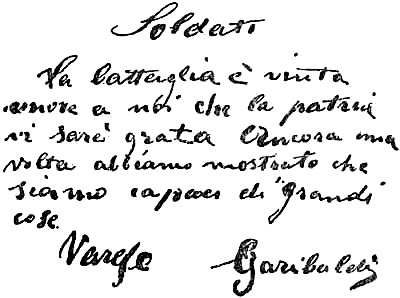 Soldati
La battaglia è vinta
onore a noi che la patria
vi sarè grata Ancora una
volta abbiamo mostrato che
siamo capaci di grandi
cose.
Varese Garibaldi